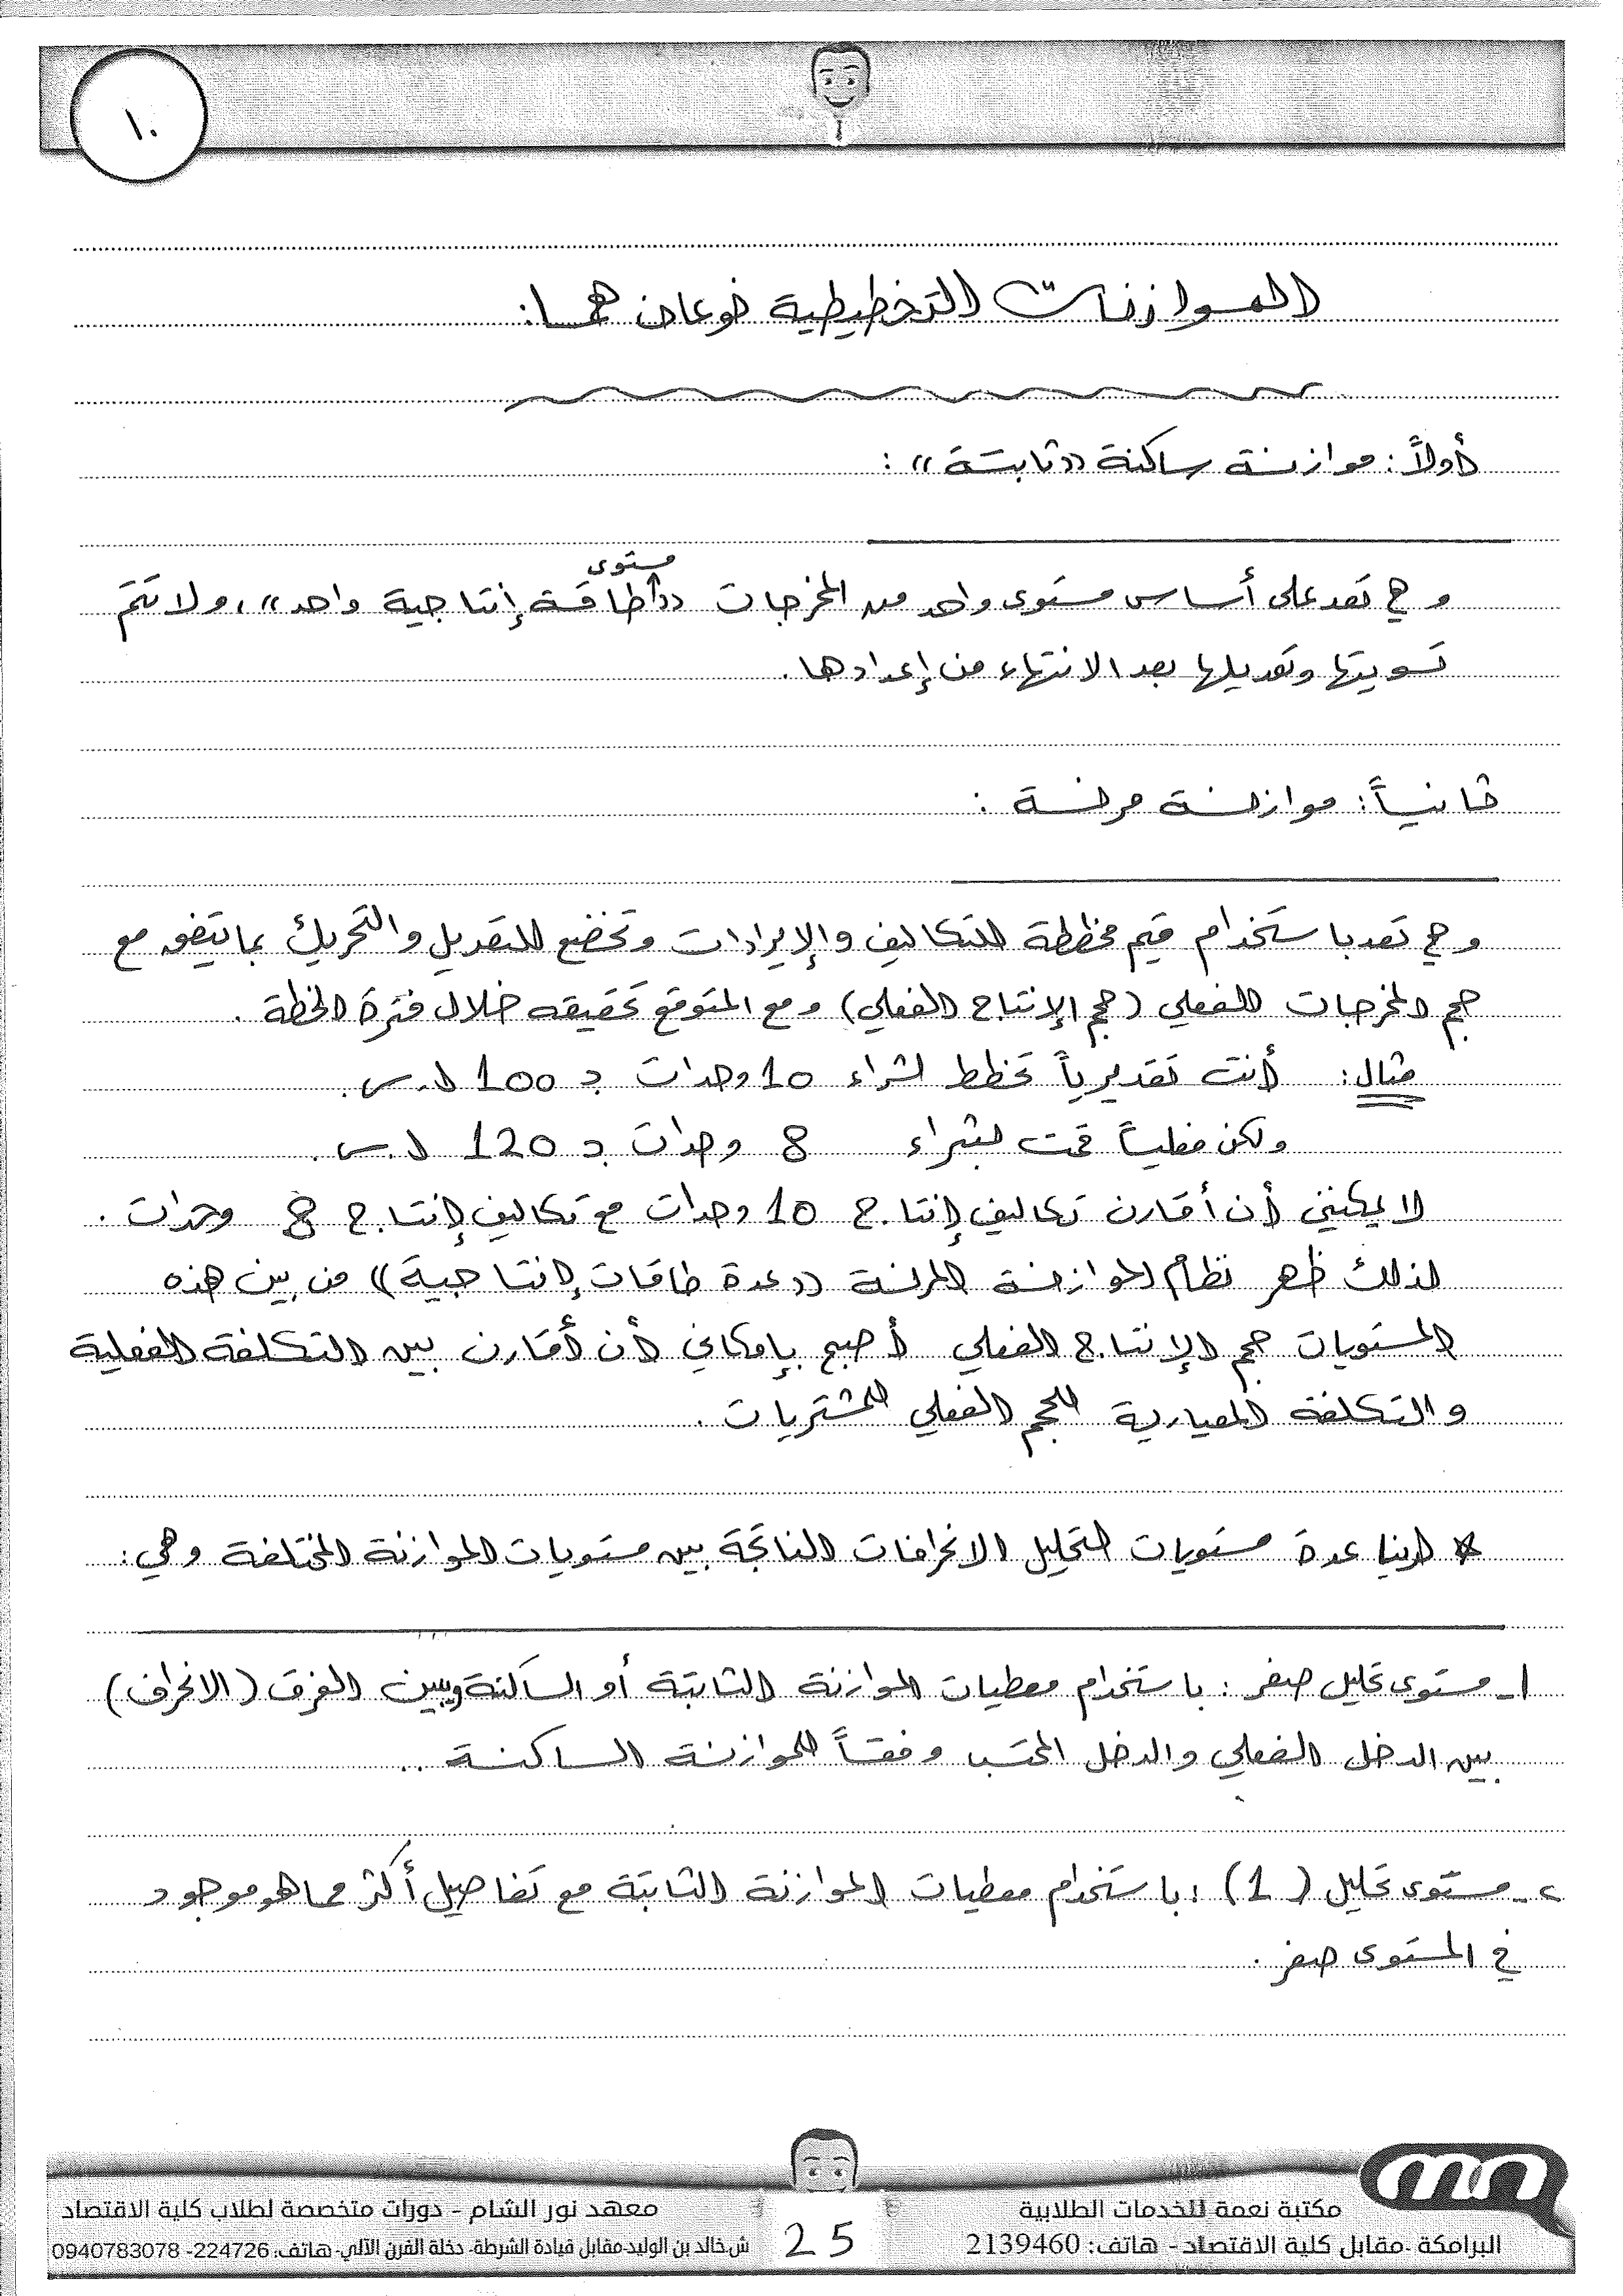 ١٠
الموازنات التخطيطية نوعان هما:
أولاً: موازنة ساكنة «ثابتة»:
مستوى
وهي تعد على أساس مستوى واحد من المخرجات «طاقة إنتاجية واحد»، ولا تتم
تسويتها وتعديلها بعد الانتهاء من إعدادها.
ثانياً: موازنة مرنة :
وهي تعد باستخدام قيم مخططة للتكاليف والإيرادات وتخضع للتعديل والتحريك بما يتفق مع
حجم المخرجات الفعلي (حجم الإنتاج الفعلي) ومع المتوقع تحقيقه خلال فترة الخطة .
مثال: أنت تقديرياً تخطط لشراء 10 وحدات بـ 100 ل.س.
ولكن فعلياً قمت بشراء 8 وحدات بـ 120 ل.س.
لا يمكنني أن أقارن تكاليف إنتاج 10 وحدات مع تكاليف إنتاج 8 وحدات .
لذلك ظهر نظام الموازنة المرنة «عدة طاقات إنتاجية» من بين هذه
المستويات حجم الإنتاج الفعلي أصبح بإمكاني أن أقارن بين التكلفة الفعلية
والتكلفة المعيارية للحجم الفعلي للمشتريات .
* لدينا عدة مستويات لتحليل الانحرافات الناتجة بين مستويات الموازنة المختلفة وهي:
١- مستوى تحليل صفر : باستخدام معطيات الموازنة الثابتة أو الساكنة ويبين الفرق (الانحراف)
بين الدخل الفعلي والدخل المحتسب وفقاً للموازنة الساكنة ..
٢- مستوى تحليل (1) : باستخدام معطيات الموازنة الثابتة مع تفاصيل أكثر مما هو موجود
في المستوى صفر .
مكتبة نعمة للخدمات الطلابية
البرامكة -مقابل كلية الاقتصاد - هاتف: 2139460
25
معهد نور الشام - دورات متخصصة لطلاب كلية الاقتصاد
ش.خالد بن الوليد-مقابل قيادة الشرطة- دخلة الفرن الآلي- هاتف: 224726- 0940783078